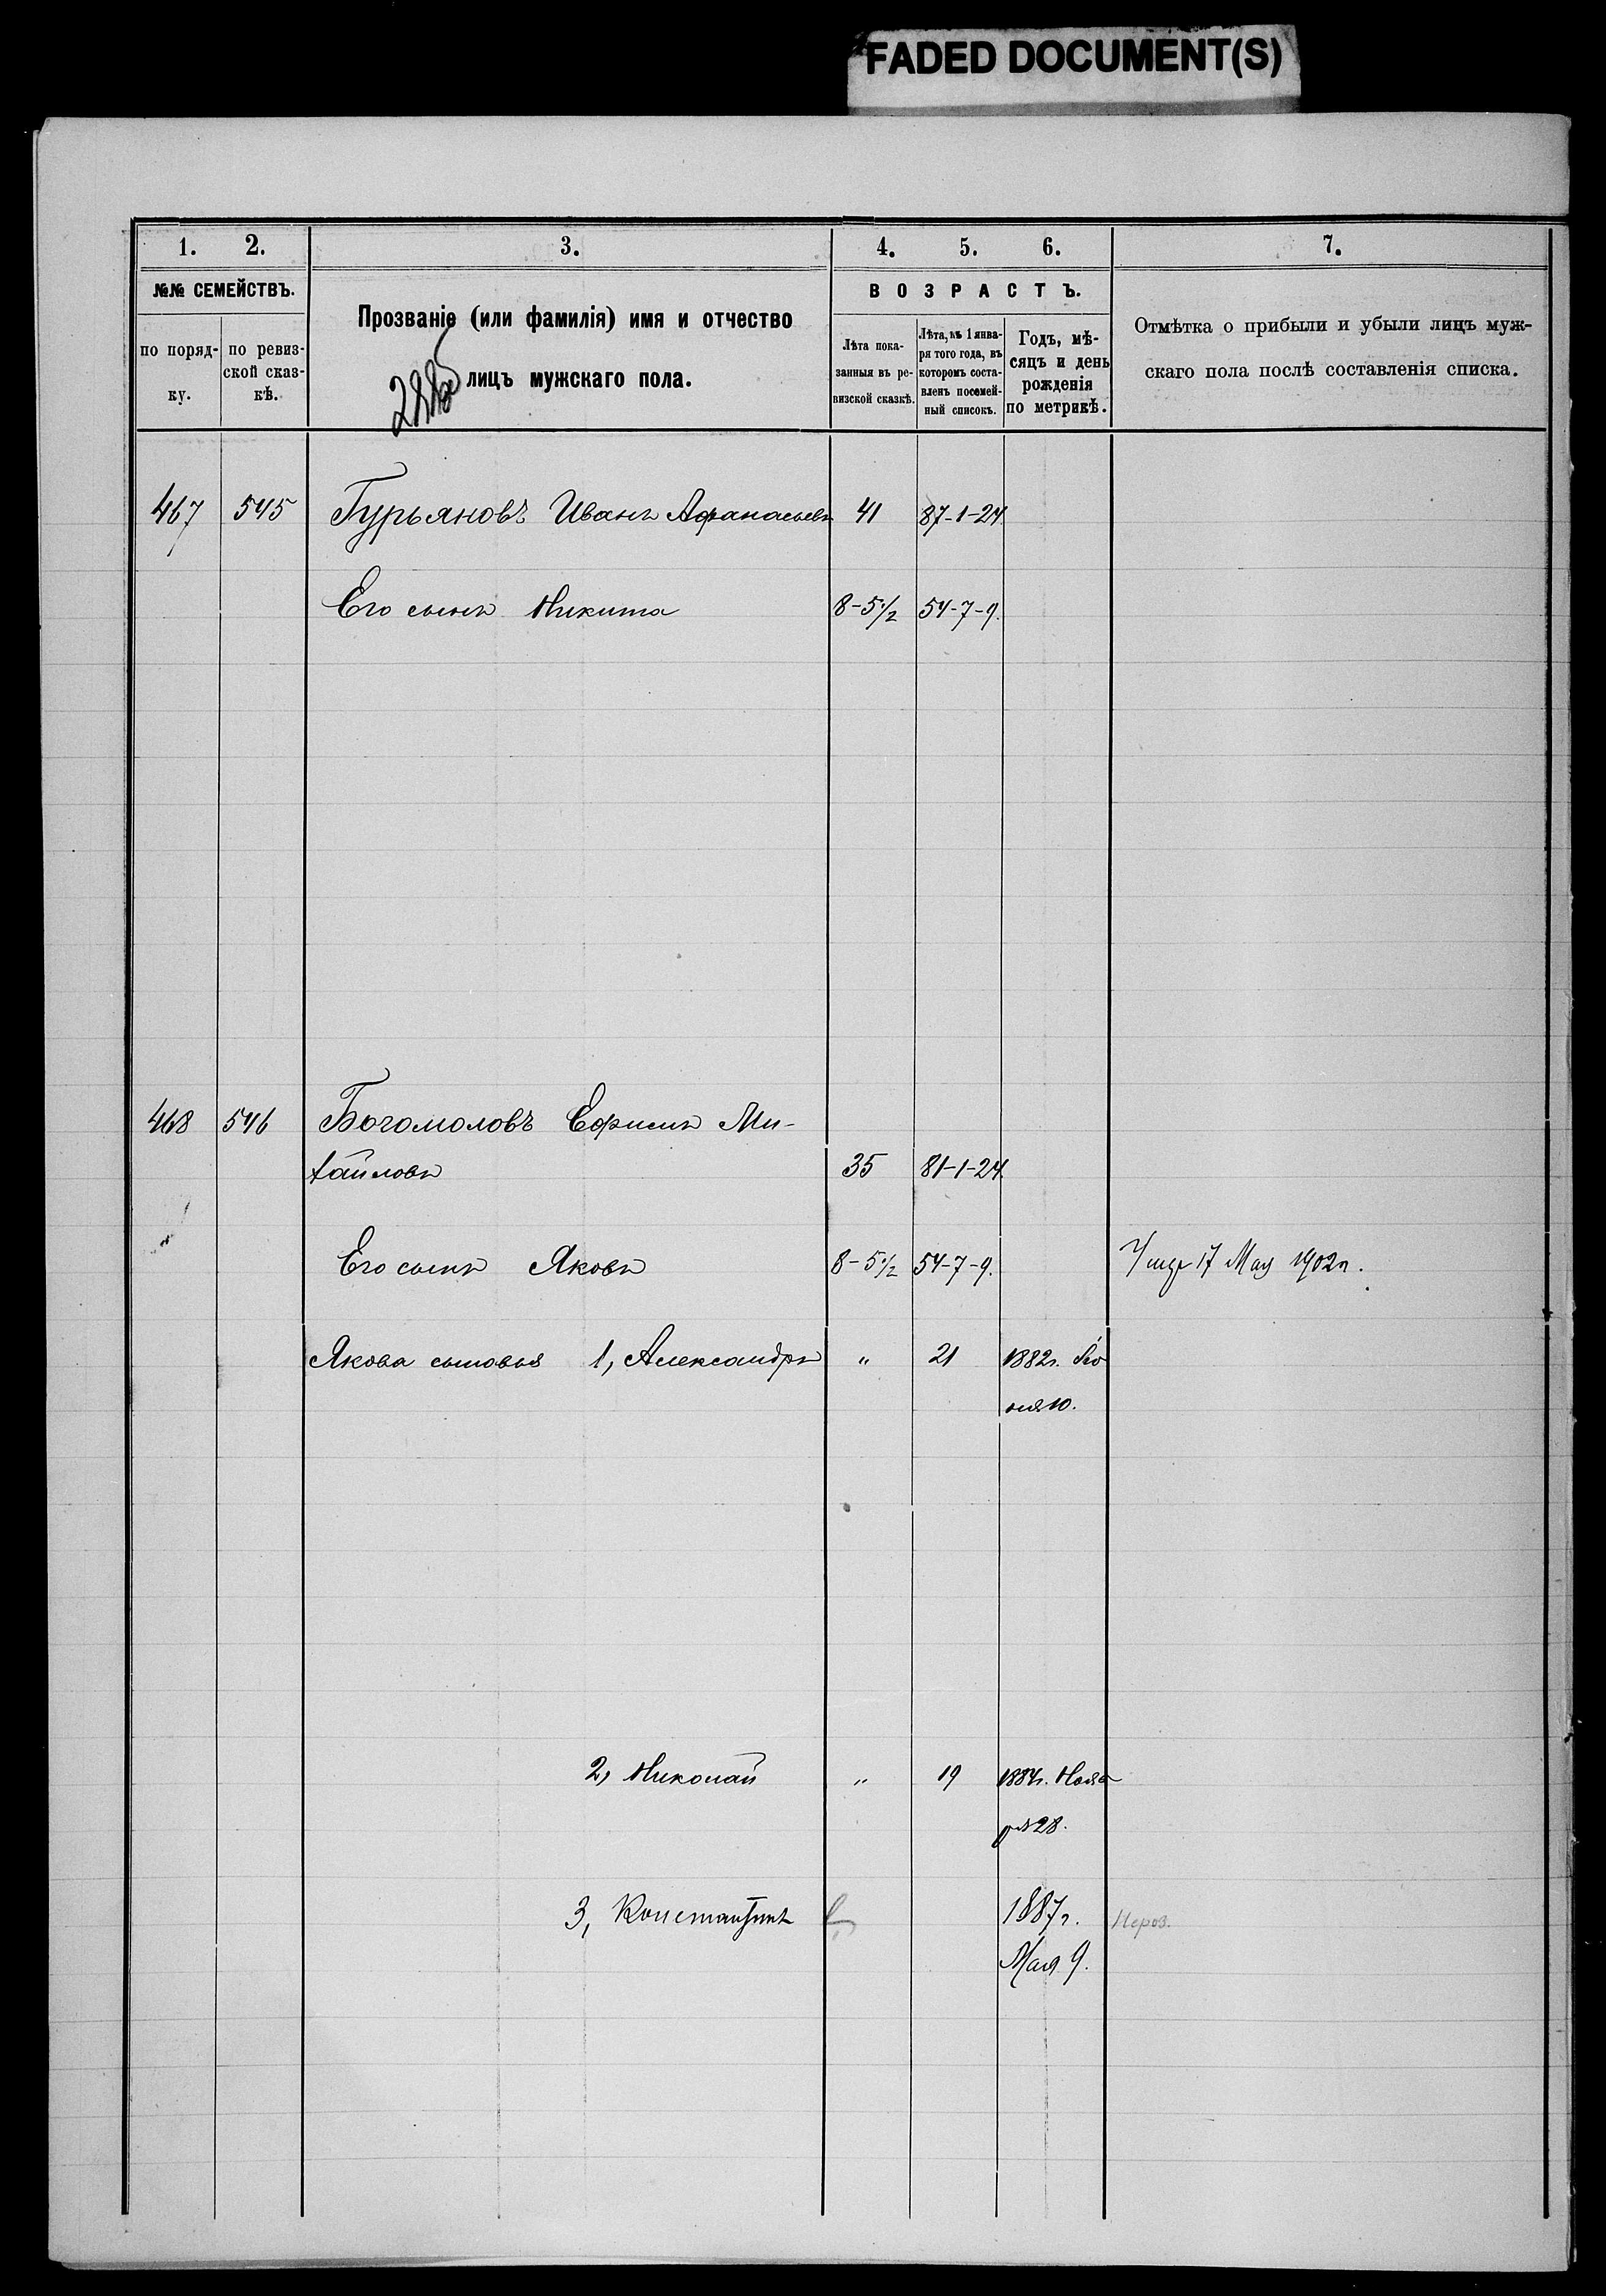 FADED DOCUMENT(S)
1. 2. 3. 4. 5. 6. 7.
№№ СЕМЕЙСТВЪ.
по поряд-
ку.
по ревиз-
ской сказ-
кѣ.
Прозваніе (или фамилія) имя и отчество
лицъ мужскаго пола.
ВОЗРАСТЪ.
Лѣта пока-
занныя въ ре-
визской сказкѣ.
Лѣта, къ 1 янва-
ря того года, въ
которомъ соста-
вленъ посемей-
ный списокъ.
Годъ, мѣ-
сяцъ и день
рожденія
по метрикѣ.
Отмѣтка о прибыли и убыли лицъ муж-
скаго пола послѣ составленія списка.
467 545 Гурьяновъ Иванъ Афанасьевъ 41 87-1-24
Его сынъ Никита 8-5½ 54-7-9.
468 546 Богомоловъ Ефимъ Ми-
хайловъ 35 81-1-24.
Его сынъ Яковъ 8-5½ 54-7-9. 17 Мая 1902г.
Якова сыновья 1, Александръ „ 21 1882г.
10.
2, Николай „ 19 1884г. Нояб
ря 28.
3, Константинъ 1887г.
Мая 9.